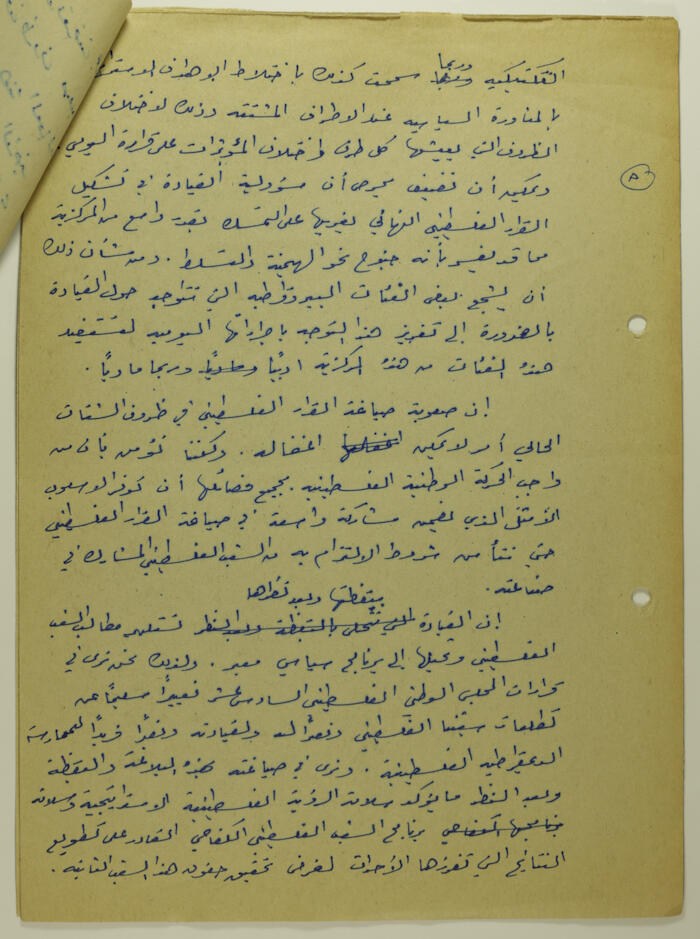 التكتيكية وربما سمحت كذلك باختلاط الاهداف
بالمناورة السياسية عند الاطراف المشتتة وذلك لاختلاف
الظروف التي يعيشها كل طرف واختلاف المؤثرات على قراره اليومي.
ويمكن أن نضيف بحرص أن مسؤولية القيادة في تشكيل
القرار الفلسطيني النهائي يغريها على التمسك بقدر واسع من المركزية
مما قد يفسر بأنه جنوح نحو الهيمنة والتسلط. ومن شأن ذلك
أن يشجع بعض الفئات البيروقراطية التي تتواجد حول القيادة
بالضرورة إلى تعزيز هذا التوجه باجراءاتها اليومية لتستفيد
هذه الفئات من هذه المركزية ادبيًا وربما ماديًا.
ان صعوبة صياغة القرار الفلسطيني في ظروف الشتات
الحالي أمر لا يمكن اغفاله. ولكننا نؤمن بأن من
واجب الحركة الوطنية الفلسطينية بجميع فصائلها أن توفر الاسلوب
الأمثل الذي يضمن مشاركة واسعة في صياغة القرار الفلسطيني
حتى نتأمن شروط الالتزام به من الشعب الفلسطيني المشارك في
صناعته.
بيقظتها وبعد نظرها
ان القيادة تستلهم مطالب الشعب
الفلسطيني وتحيلها إلى برنامج سياسي معبر. ولذلك نحن نرى في
قرارات المجلس الوطني الفلسطيني السادس عشر تعبيرًا سليمًا عن
تطلعات شعبنا الفلسطيني وفخرًا له ولقيادته وفخرًا فريدًا للممارسة
الديمقراطية الفلسطينية. ونرى في صياغته بهذه البلاغة واليقظة
وبعد النظر ما يؤكد سلامة الرؤية الفلسطينية الاستراتيجية وسلامة
برنامج الشعب الفلسطيني الكفاحي القادر على تطويع
النتائج التي تفرزها الأحداث لغرض تحقيق حقوق هذا الشعب الثابتة.
٨